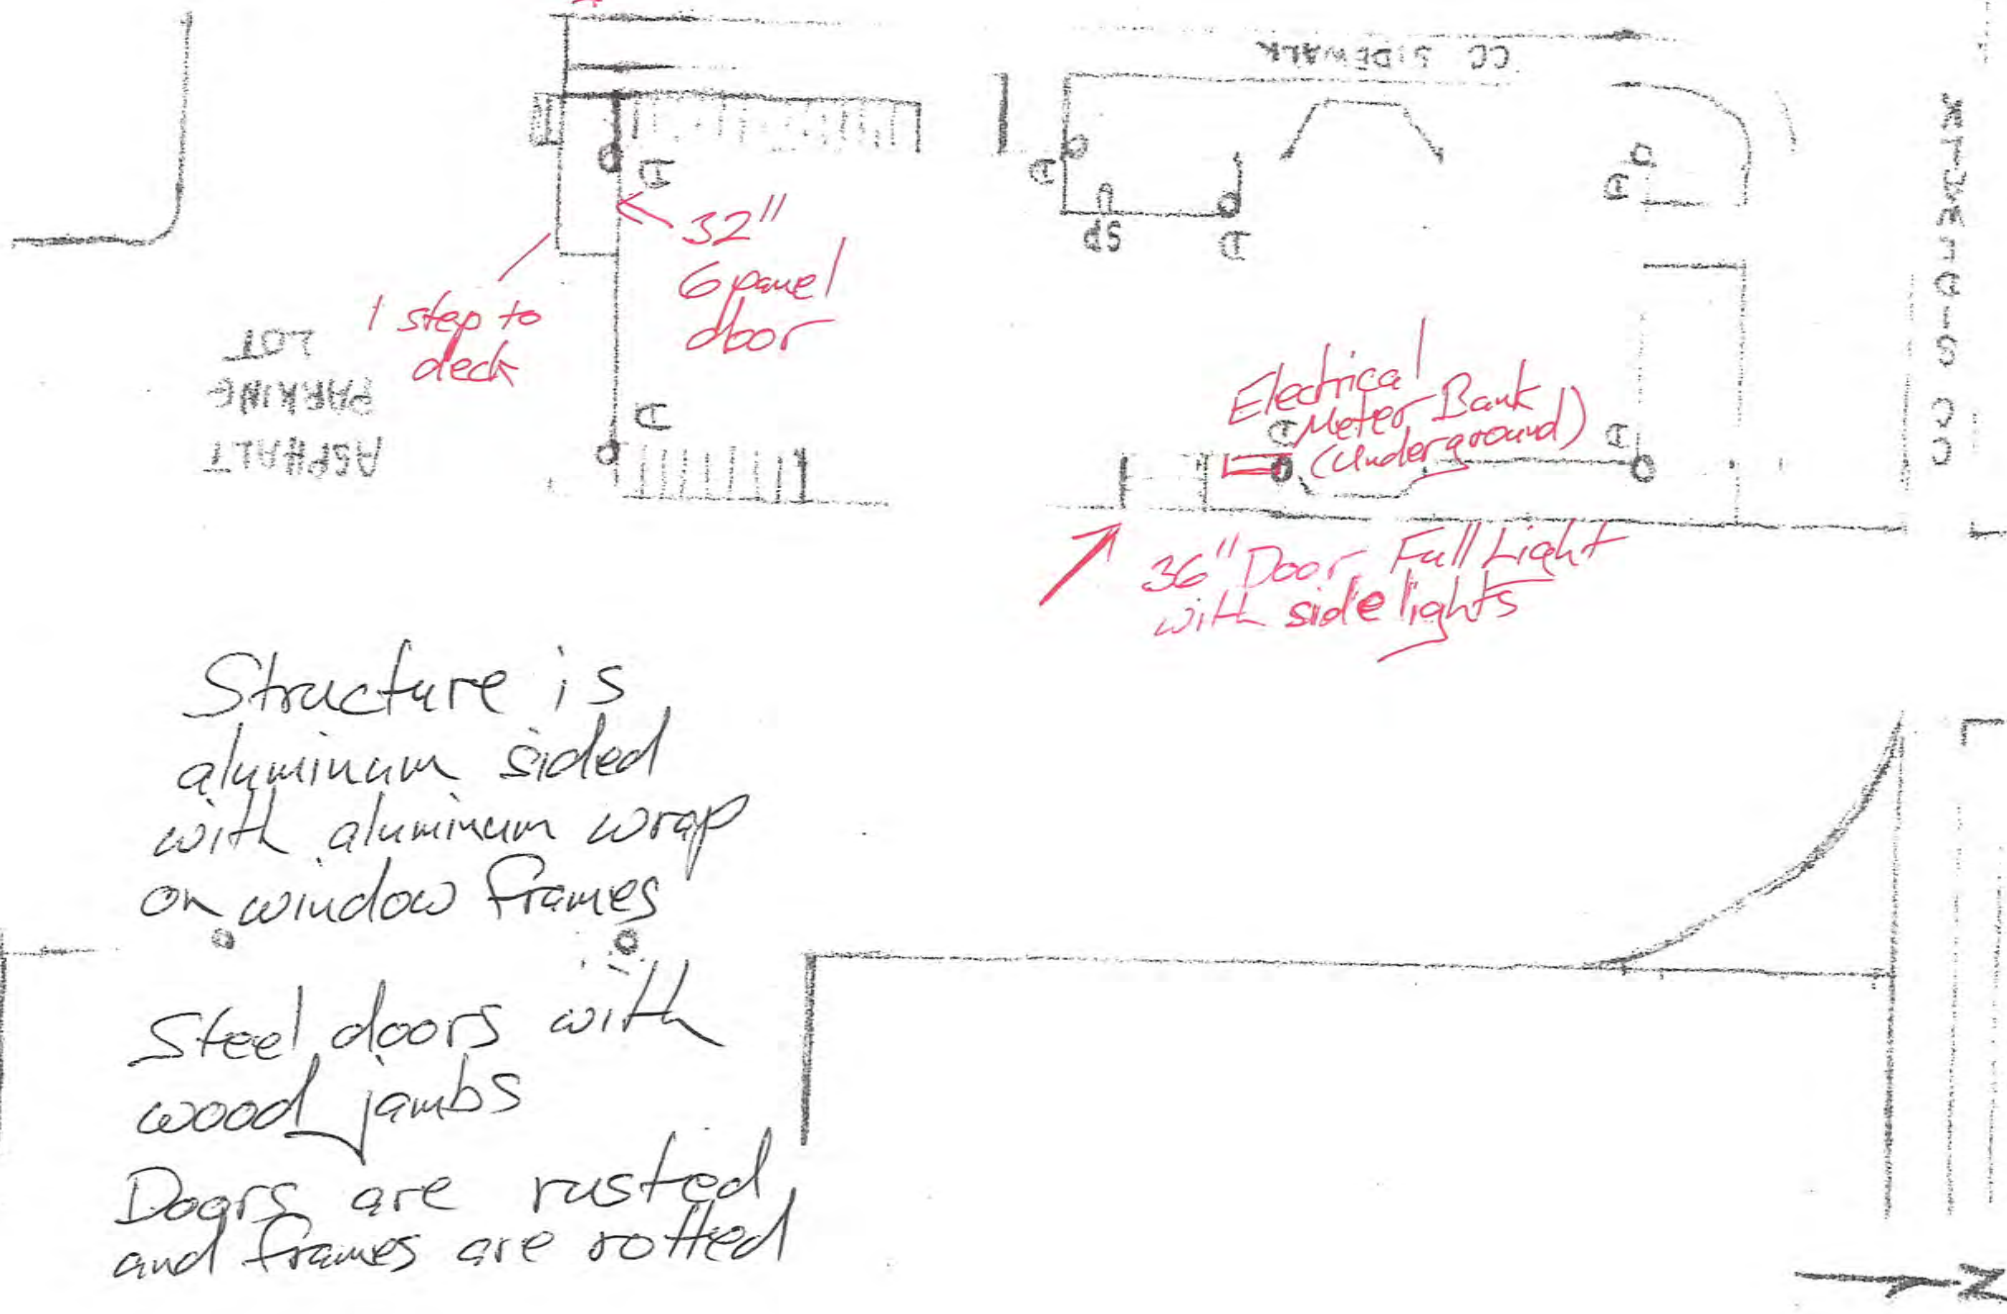 CC SIDEWALK
CC SIDEWALK
D
D
D
D
dS
D
32"
6 panel
door
1 step to
deck
ASPHALT
PARKING
LOT
D
Electrical
Meter Bank
(Underground)
D
D
36" Door Full Light
with sidelights
Structure is
aluminum sided
with aluminum wrap
on window frames
Steel doors with
wood jambs
Doors are rusted
and frames are rotted
N